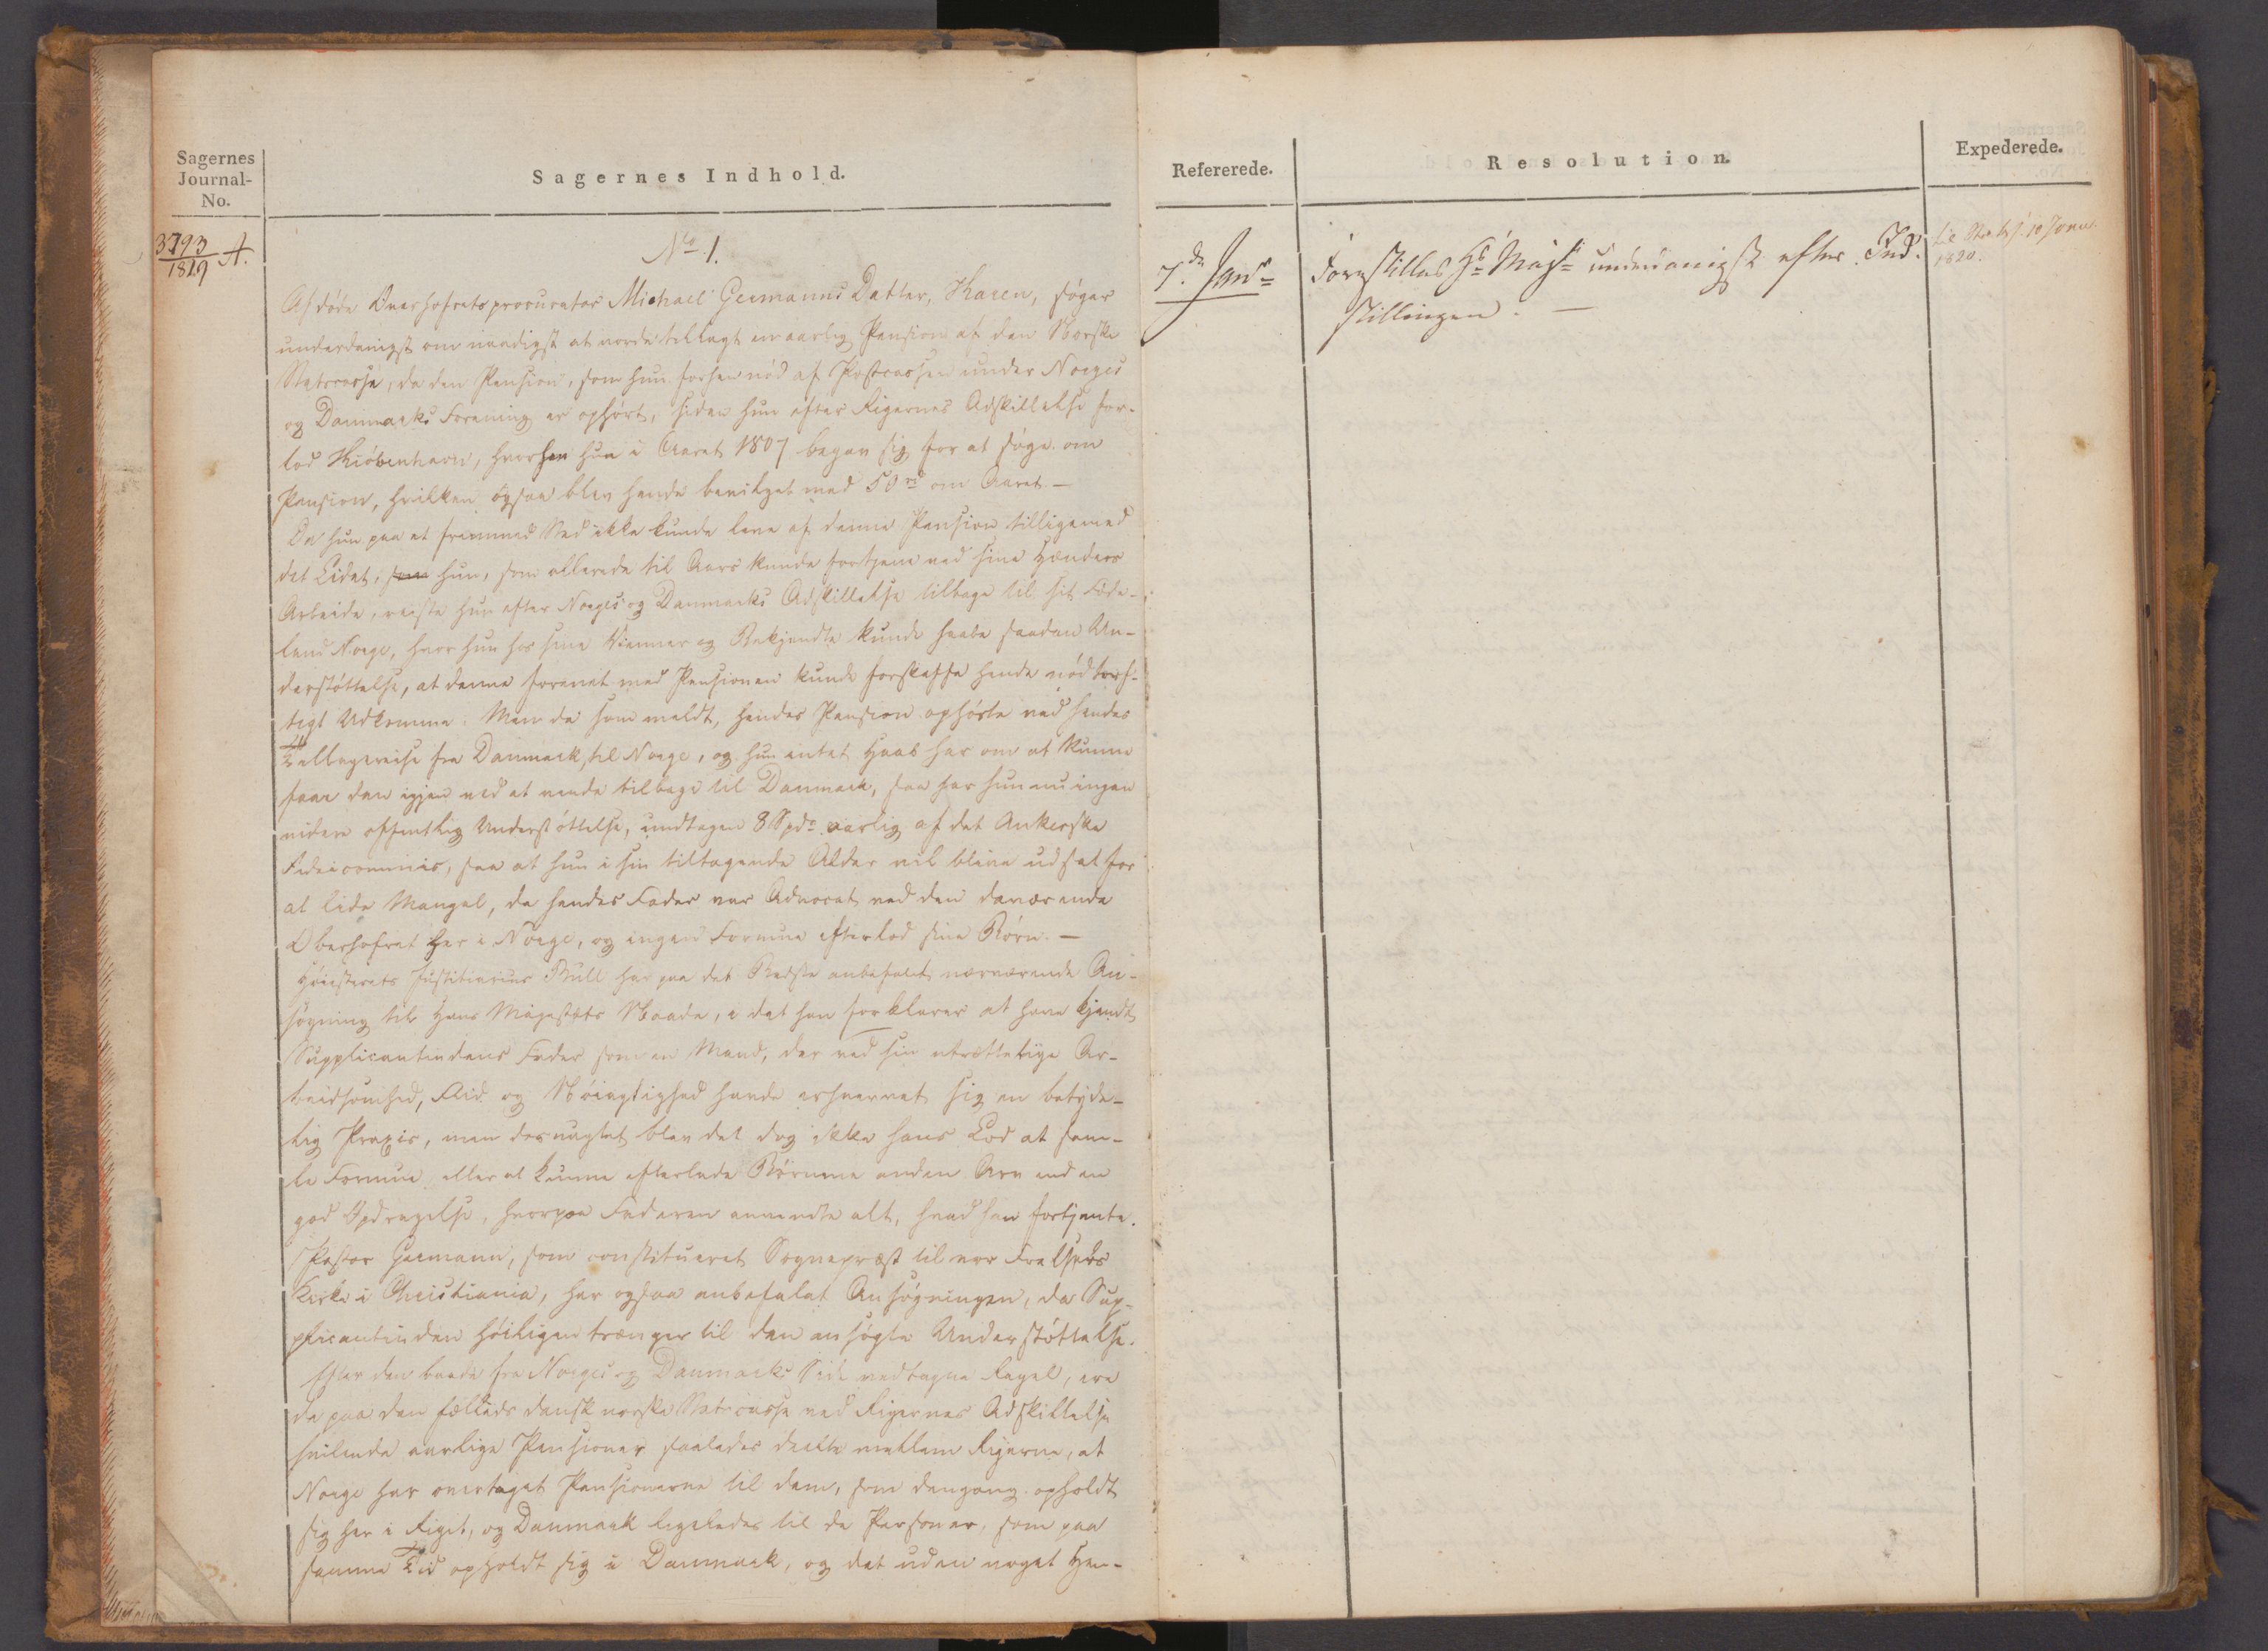 Sagernes
Journal-
No.
Sagernes Indhold.
3793 A.
1819
No 1.
Afdøde Overhofretsprocurator Michael Germanns Datter, Karen, søger
underdanigst om naadigst at vorde tillagt en aarlig Pension af den Norske
Statscasse, da den Pension, som hun forhen nød af Postcassen under Norges
og Danmarks Forening er ophørt, siden hun efter Rigernes Adskillelse for-
lod Kiøbenhavn, hvorhen hun i Aaret 1807 begav sig for at søge om
Pension, hvilken ogsaa blev hende bevilget med 50 rd om Aaret. —
Da hun paa et fremmed Sted ikke kunde leve af denne Pension tilligemed
det Lidet, som hun, som allerede til Aars kunde fortjene ved sine Hænders
Arbeide, reiste hun efter Norges og Danmarks Adskillelse tilbage til sit Føde-
land Norge, hvor hun hos sine Venner og Bekjendte kunde haabe saadan Un-
derstøttelse, at denne forenet med Pensionen kunde forskaffe hende nødtørf-
tigt Udkomme. Men da som meldt, hendes Pension ophørte ved hendes
Tilbagereise fra Danmark til Norge, og hun intet Haab har om at kunne
faae den igjen ved at vende tilbage til Danmark, saa har hun nu ingen
videre offentlig Understøttelse, undtagen 8 Spdr aarlig af det Ankerske
Fideicommis, saa at hun i sin tiltagende Alder vil blive udsat for
at lide Mangel, da hendes Fader var Advocat ved den daværende
Oberhofret her i Norge, og ingen Formue efterlod sine Børn. —
Høiesterets Justitiarius Bull har paa det Bedste anbefalet nærværende An-
søgning til Hans Majestæts Naade, i det han forklarer at have kjendt
Supplicantindens Fader som en Mand, der ved sin utrættelige Ar-
beidsomhed, Flid og Nøiagtighed havde erhvervet sig en betyde-
lig Praxis, men desuagtet blev det dog ikke hans Lod at sam-
le Formue eller at kunne efterlade Børnene anden Arv end en
god Opdragelse, hvorpaa Faderen anvendte alt, hvad han fortjente.
Pastor Germann, som constitueret Sognepræst til vor Frelsers
Kirke i Christiania, har ogsaa anbefalet Ansøgningen, da Sup-
plicantinden høiligen trænger til den ansøgte Understøttelse.
Efter den baade fra Norges og Danmarks Side vedtagne Regel, ere
de paa den fælleds dansk norske Statscasse ved Rigernes Adskillelse
hvilende aarlige Pensioner saaledes deelte mellem Rigerne, at
Norge har overtaget Pensionerne til dem, som dengang opholdt
sig her i Riget, og Danmark ligeledes til de Personer, som paa
samme Tid opholdt sig i Danmark, og det uden noget Hen-
Refererede.
Resolution.
Expederede.
7de Janr
Forestilles Hs Majst underdanigst efter Ind-
stillingen. —
til Stats S. 10 Janr
1820.